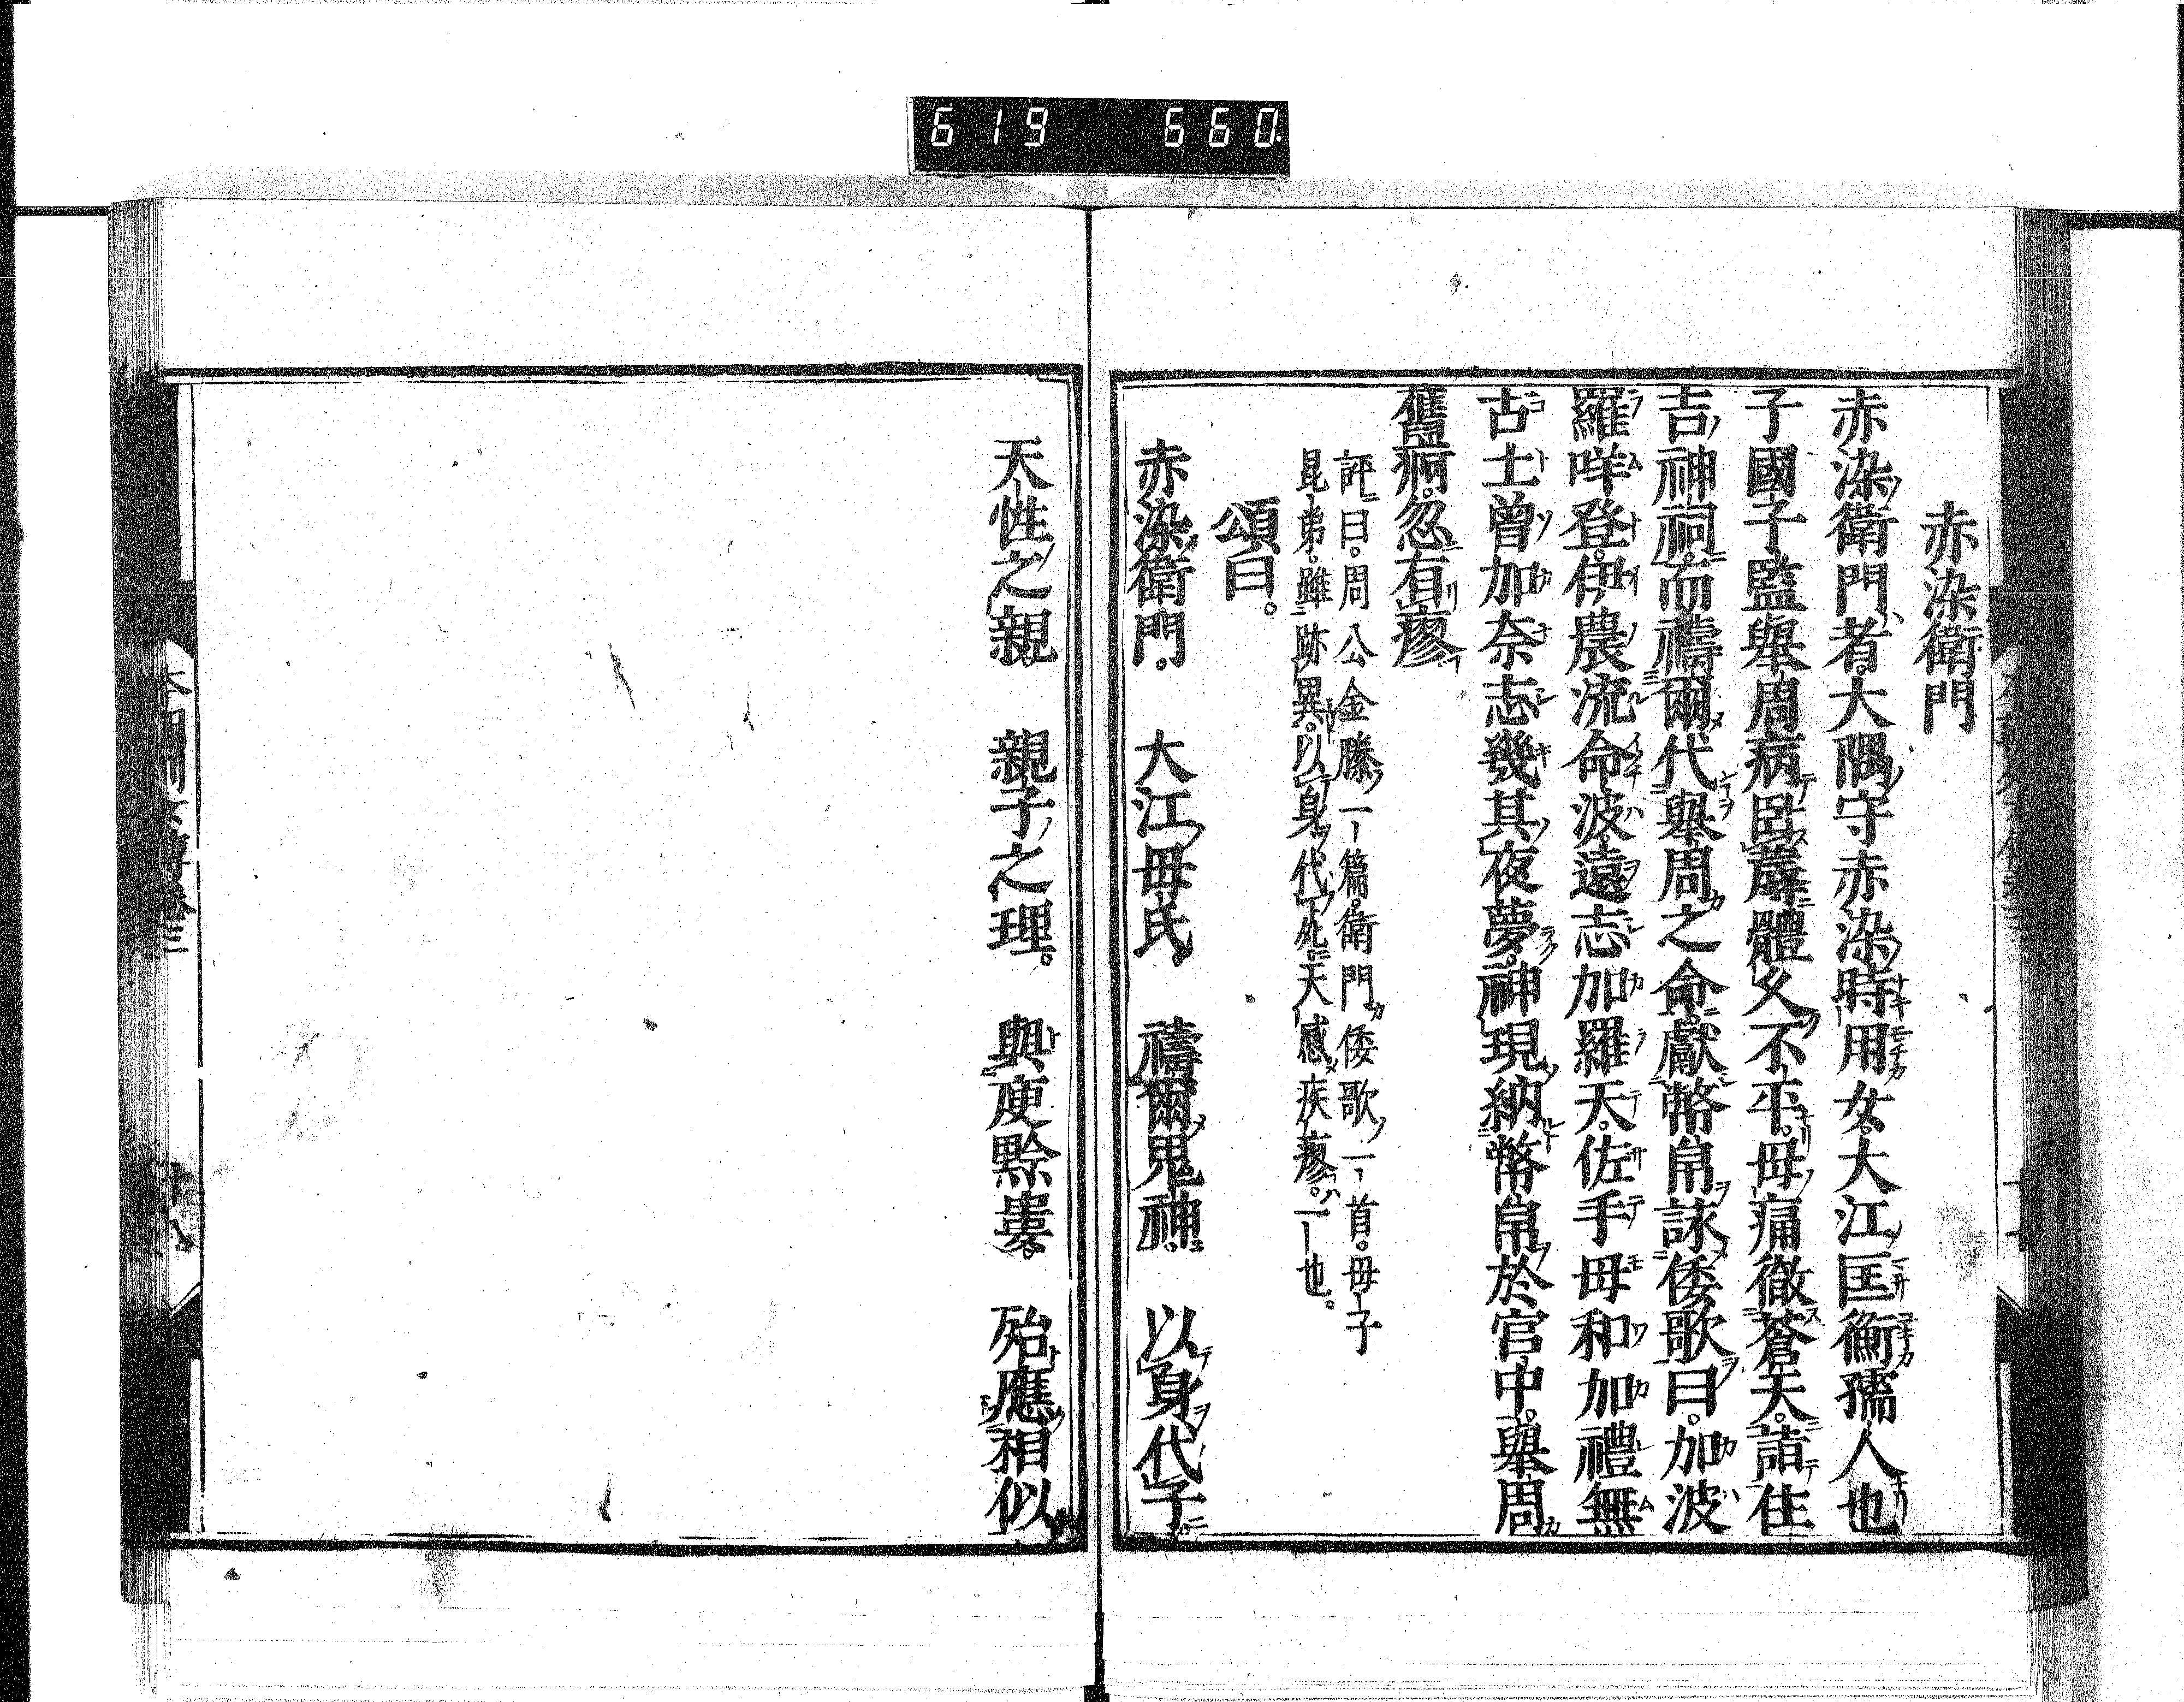 619 660.
赤染衛門
赤染衛門者。大隅守赤染時用女。大江匡衡孺人也
子國子監舉周病臥蓐體久不平。母痛徹蒼天。詣住
吉神祠。而禱爾代舉周之命。獻幣帛詠倭歌曰。加波
羅咩登。伊農流命波。遠志加羅天。佐手母和加禮無
古士曾加奈志幾其夜夢。神現納幣帛於宮中。舉周
舊痾。忽有瘳
評曰。周公金縢一篇。衛門倭歌一首。母子
昆弟。雖跡異。以身代死。天感疾瘳。一也。
頌曰。
赤染衛門。 大江母氏 禱爾鬼神。 以身代子。
天性之親 親子之理。 與庾黔婁。 殆應相似
本朝列女傳卷三